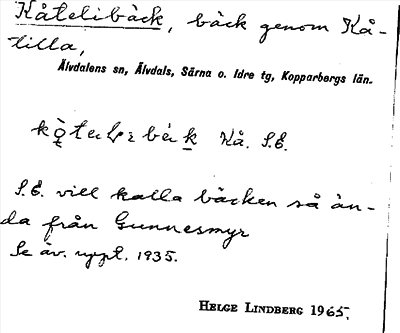 Kåtelibäck, bäck genom Kå-
tilla,
Älvdalens sn, Älvdals, Särna o. Idre tg, Kopparbergs län.
Kå. S.E.
S.E. vill kalla bäcken så än-
da från Gunnesmyr
Se äv. uppt. 1935.
HELGE LINDBERG 1965.